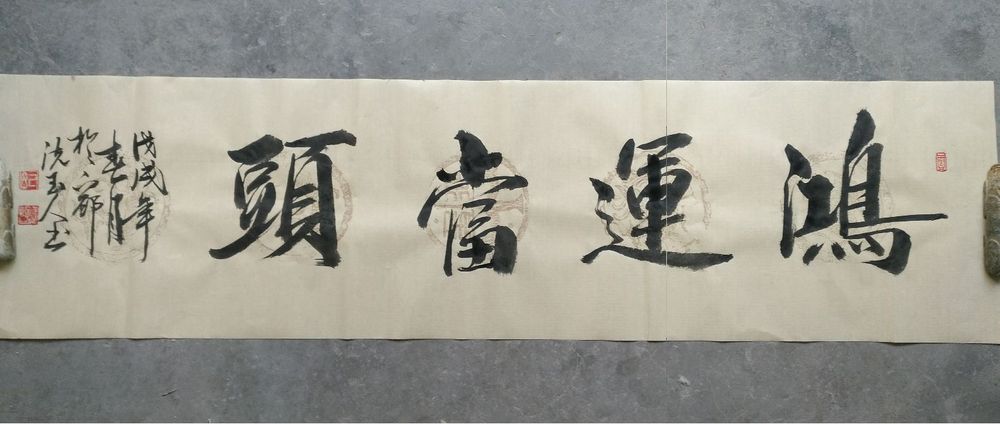 鴻運當頭
戊戌年
春月
於京郡
洗玉人書